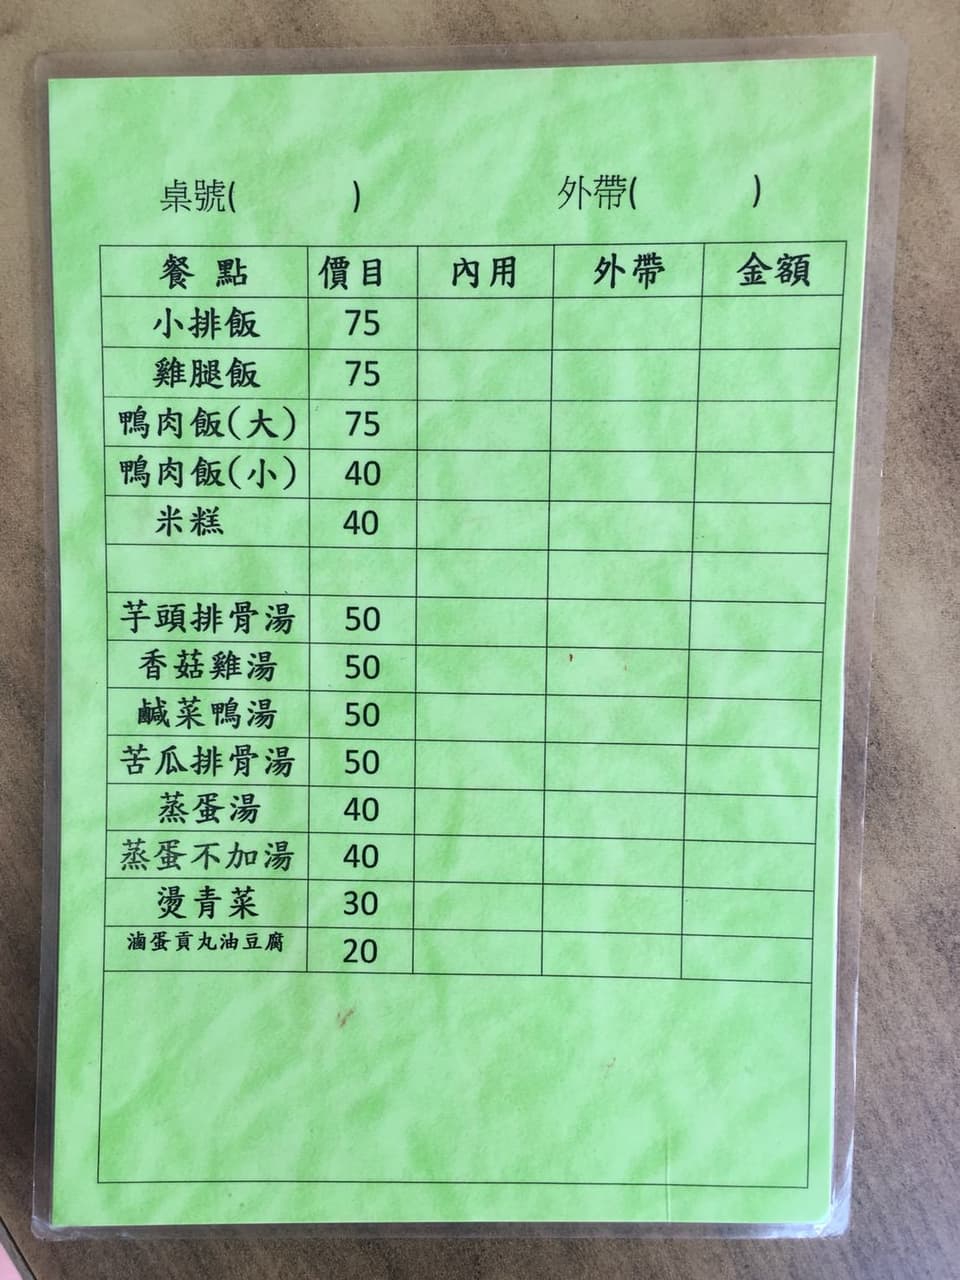 桌號( ) 外帶( )
餐 點 價目 內用 外帶 金額
小排飯 75
雞腿飯 75
鴨肉飯(大) 75
鴨肉飯(小) 40
米糕 40
芋頭排骨湯 50
香菇雞湯 50
鹹菜鴨湯 50
苦瓜排骨湯 50
蒸蛋湯 40
蒸蛋不加湯 40
燙青菜 30
滷蛋貢丸油豆腐 20